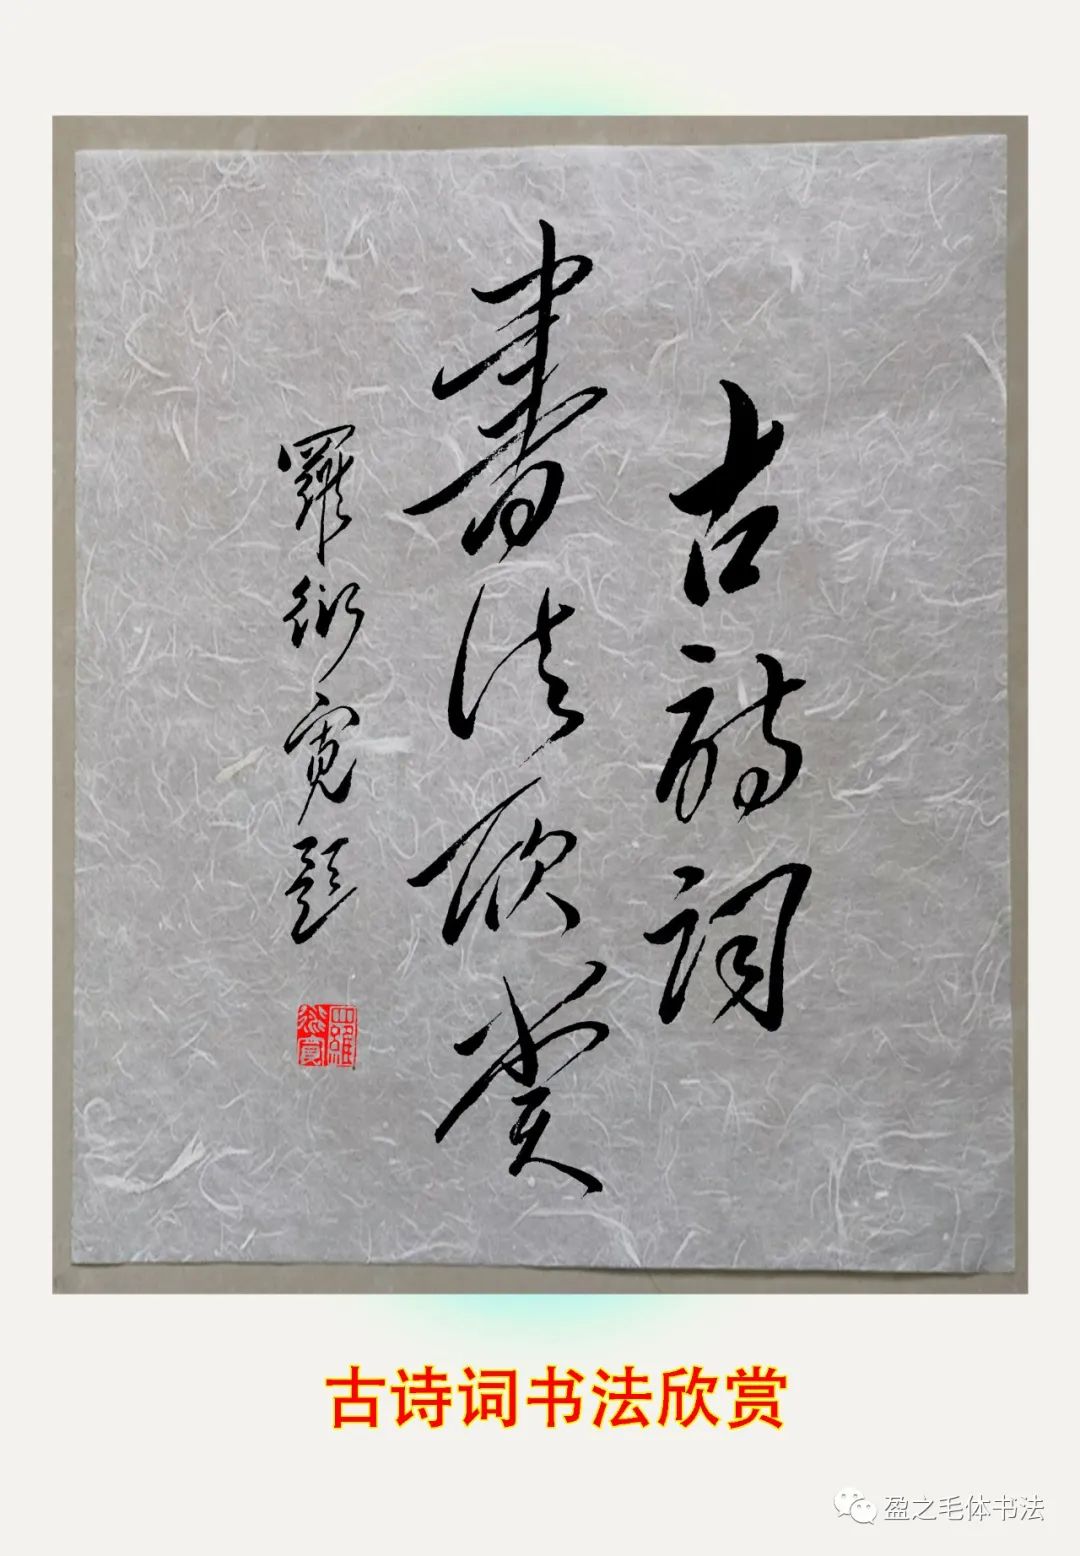 古詩詞
書法欣赏
羅衍寬題
古诗词书法欣赏
盈之毛体书法